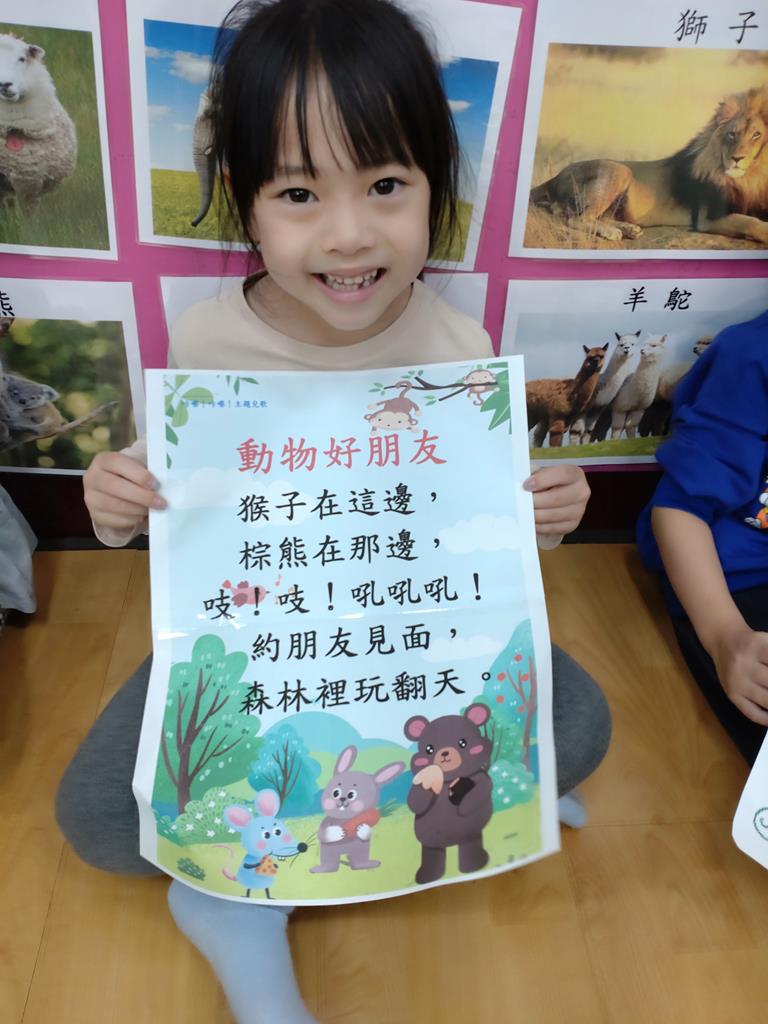 獅子
熊
羊鴕
主題兒歌
動物好朋友
猴子在這邊，
棕熊在那邊，
吱！吱！吼吼吼！
約朋友見面，
森林裡玩翻天。